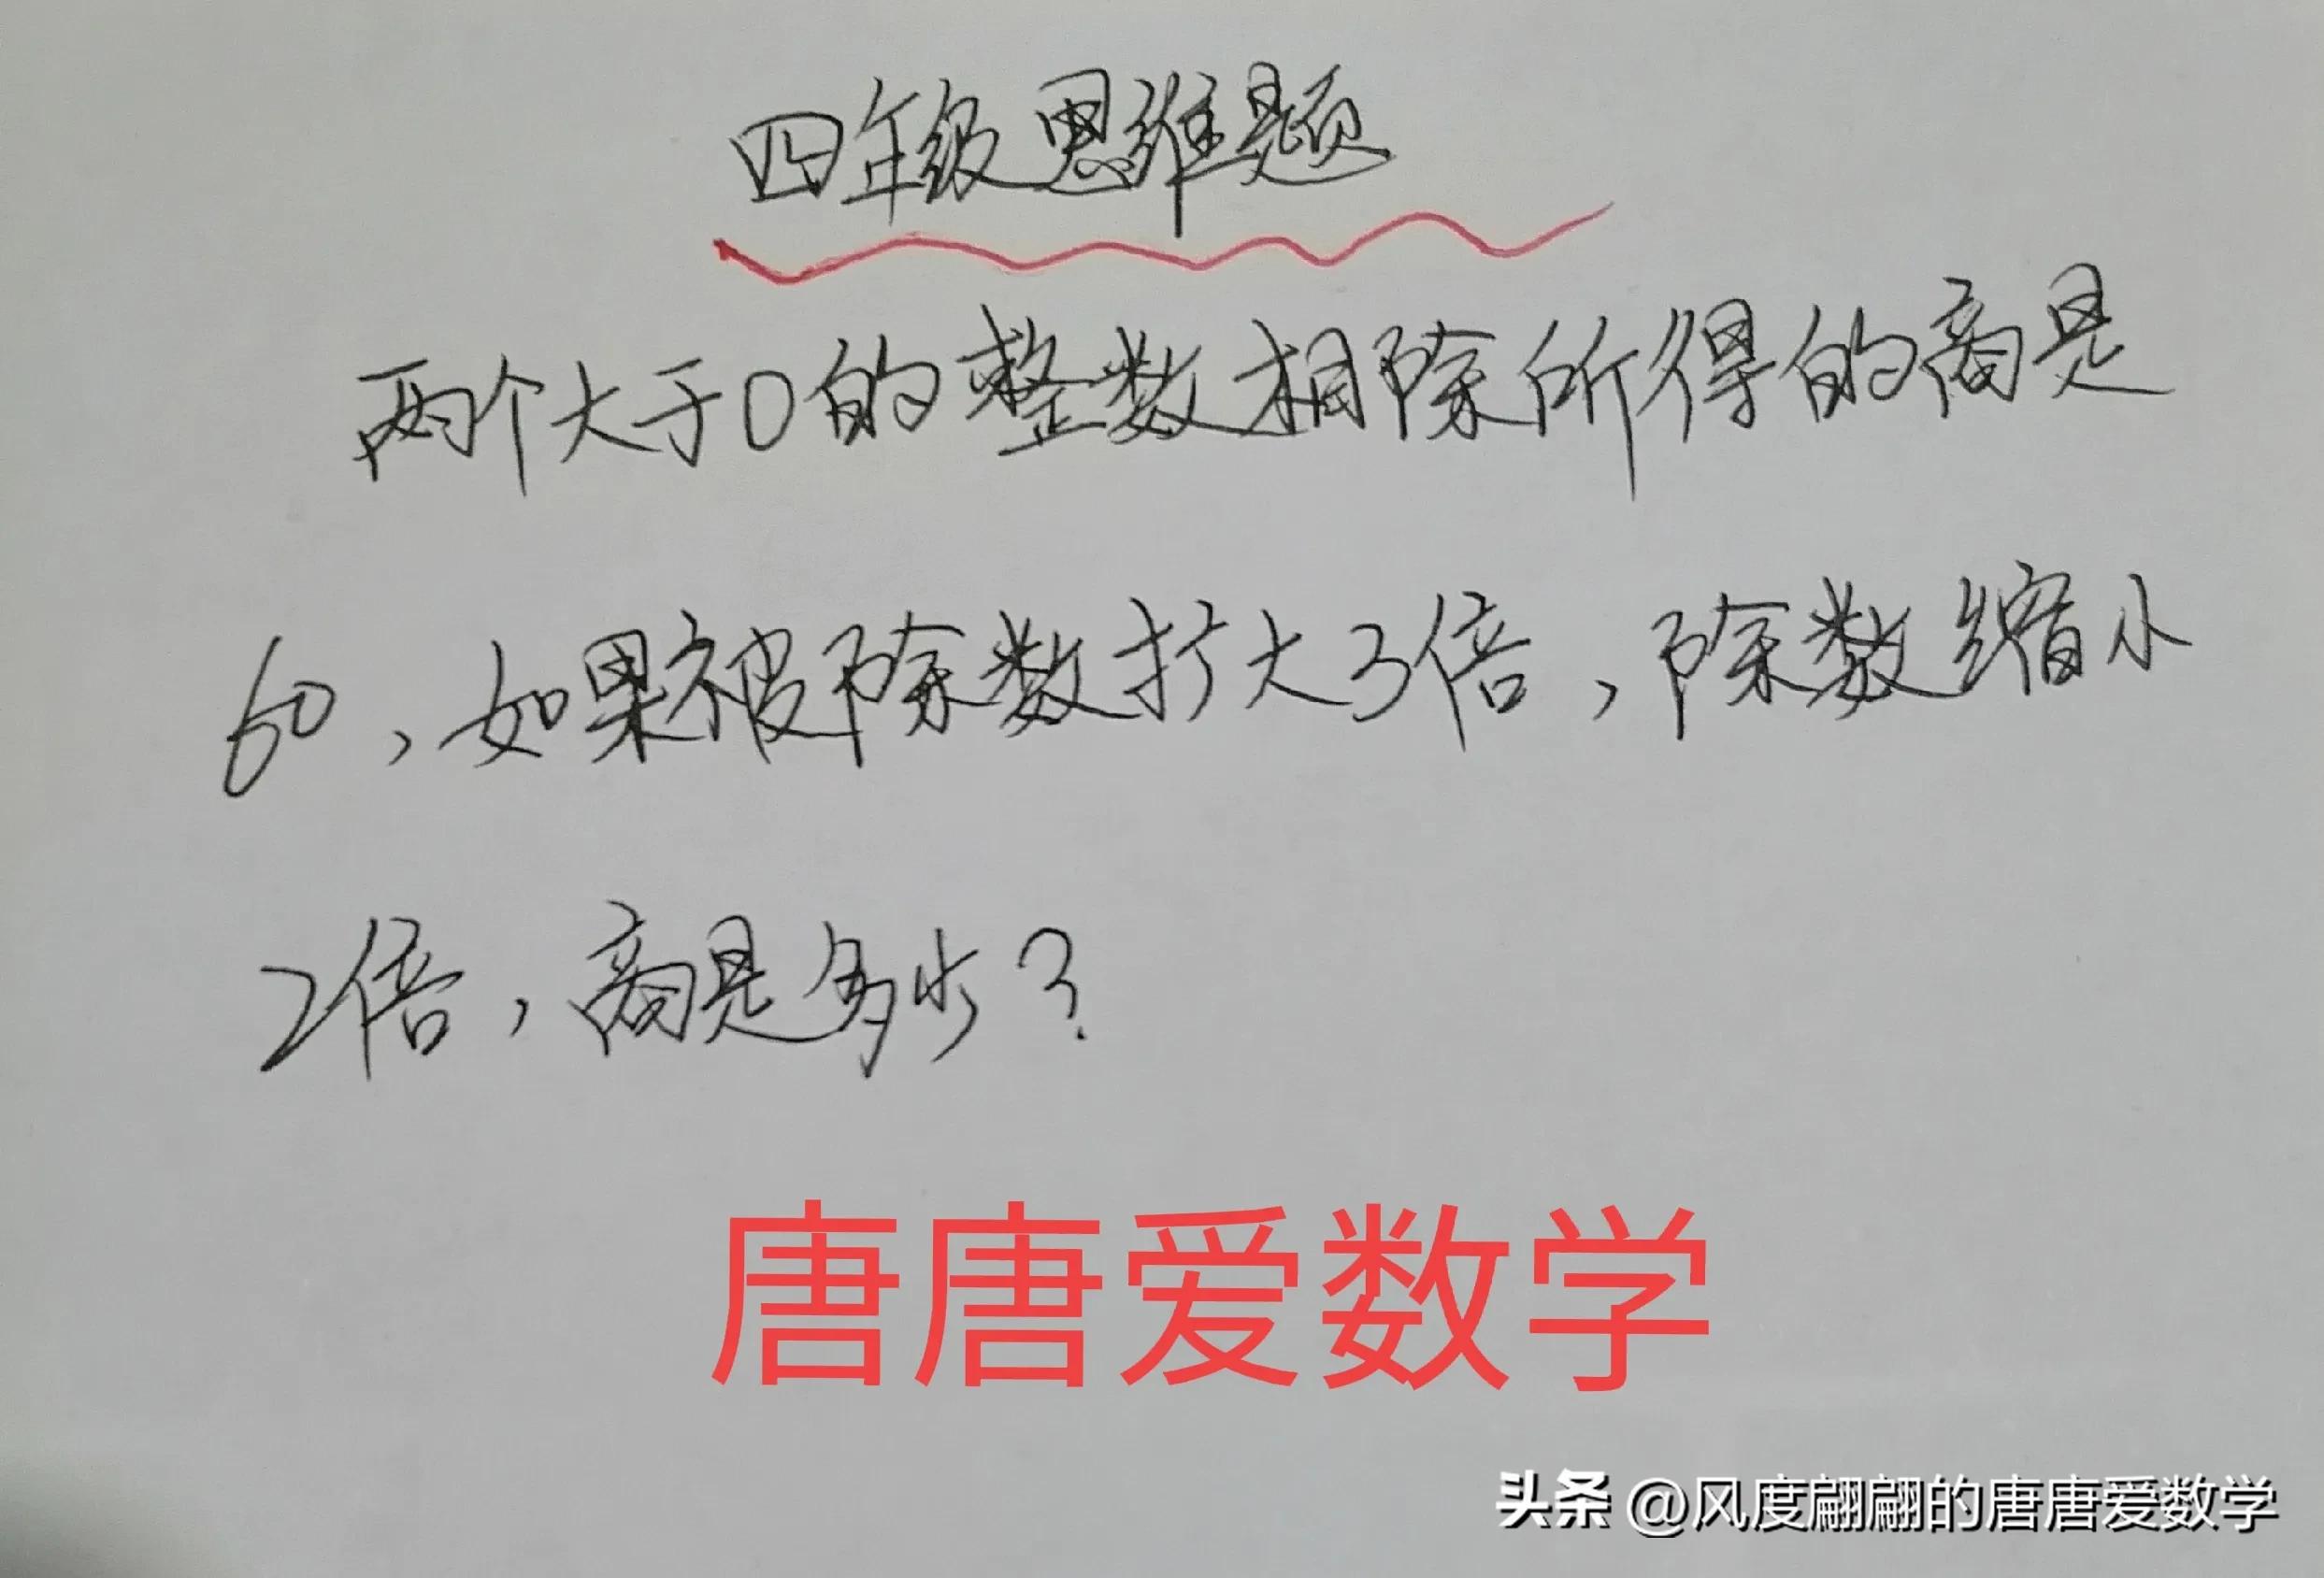 四年级思维题
两个大于0的整数相除所得的商是
60，如果被除数扩大3倍，除数缩小
2倍，商是多少？
唐唐爱数学
头条 @风度翩翩的唐唐爱数学